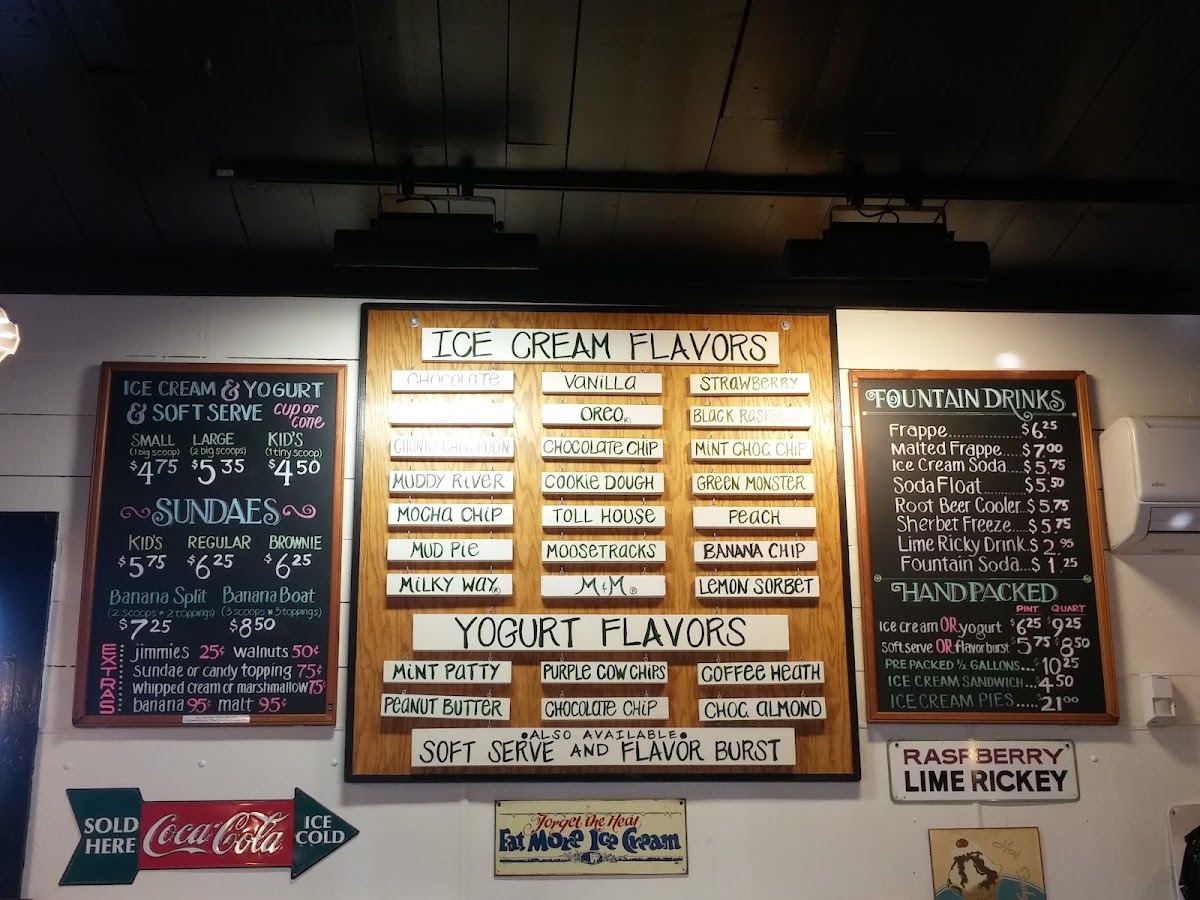 ICE CREAM & YOGURT
& SOFT SERVE CUP or CONE
SMALL LARGE KID'S
(1 big scoop) (2 big scoops) (1 tiny scoop)
$4.75 $5.35 $4.50
SUNDAES
KID'S REGULAR BROWNIE
$5.75 $6.25 $6.25
Banana Split Banana Boat
(2 scoops * 2 toppings) (3 scoops * 3 toppings)
$7.25 $8.50
EXTRAS
jimmies 25¢ walnuts 50¢
Sundae or candy topping 75¢
whipped cream or marshmallow 75¢
banana 95¢ malt 95¢
ICE CREAM FLAVORS
CHOCOLATE VANILLA STRAWBERRY
OREO® BLACK
CHOCOLATE CHIP MINT CHOC. CHIP
MUDDY RIVER COOKIE DOUGH GREEN MONSTER
MOCHA CHIP TOLL HOUSE PEACH
MUD PIE MOOSETRACKS BANANA CHIP
MILKY WAY® M&M® LEMON SORBET
YOGURT FLAVORS
MINT PATTY PURPLE COW CHIPS COFFEE HEATH
PEANUT BUTTER CHOCOLATE CHIP CHOC. ALMOND
•ALSO AVAILABLE•
SOFT SERVE AND FLAVOR BURST
FOUNTAIN DRINKS
Frappe............$6.25
Malted Frappe....$7.00
Ice Cream Soda...$5.75
Soda Float........$5.50
Root Beer Cooler..$5.75
Sherbet Freeze...$5.75
Lime Ricky Drink.$2.95
Fountain Soda...$1.25
HAND PACKED
PINT QUART
Ice cream OR yogurt $6.25 $9.25
Soft serve OR flavor burst $5.75 $8.50
PRE PACKED ½ GALLONS...$10.25
ICE CREAM SANDWICH...$4.50
ICE CREAM PIES.....$21.00
FUJITSU
SOLD HERE Coca-Cola ICE COLD
Forget the Heat
Eat More Ice Cream
RASPBERRY
LIME RICKEY